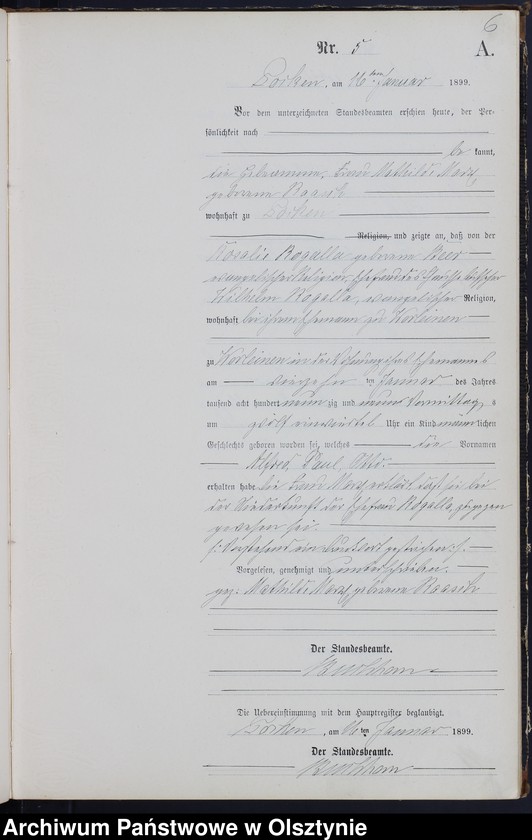 6
Nr. 5 A.
am 16ten Januar 1899.
Vor dem unterzeichneten Standesbeamten erschien heute, der Per-
sönlichkeit nach
be kannt,
die Hebeamme, Frau Mathilde
geborene Raasch
wohnhaft zu
Religion, und zeigte an, daß von der
Rosalie Rogalla geborene Beer
evangelischer Religion, Ehefrau des
Wilhelm Rogalla, evangelischer Religion,
wohnhaft bei ihrem Ehemann zu Worleinen
zu Worleinen in der Wohnung ihres Ehemannes
am vierzehn ten Januar des Jahres
tausend acht hundert neun zig und neun Vormittags
um zwölf einviertel Uhr ein Kind männlichen
Geschlechts geboren worden sei, welches die Vornamen
Alfred Paul Otto
erhalten habe. Die Frau erklärt, daß sie bei
der Niederkunft der Ehefrau Rogalla, zugegen
gewesen sei.
Vorstehend ein Druckwort gestrichen.
Vorgelesen, genehmigt und unterschrieben.
gez: Mathilde geborene Raasch
Der Standesbeamte.
Die Uebereinstimmung mit dem Hauptregister beglaubigt.
am 16ten Januar 1899.
Der Standesbeamte.
Archiwum Państwowe w Olsztynie